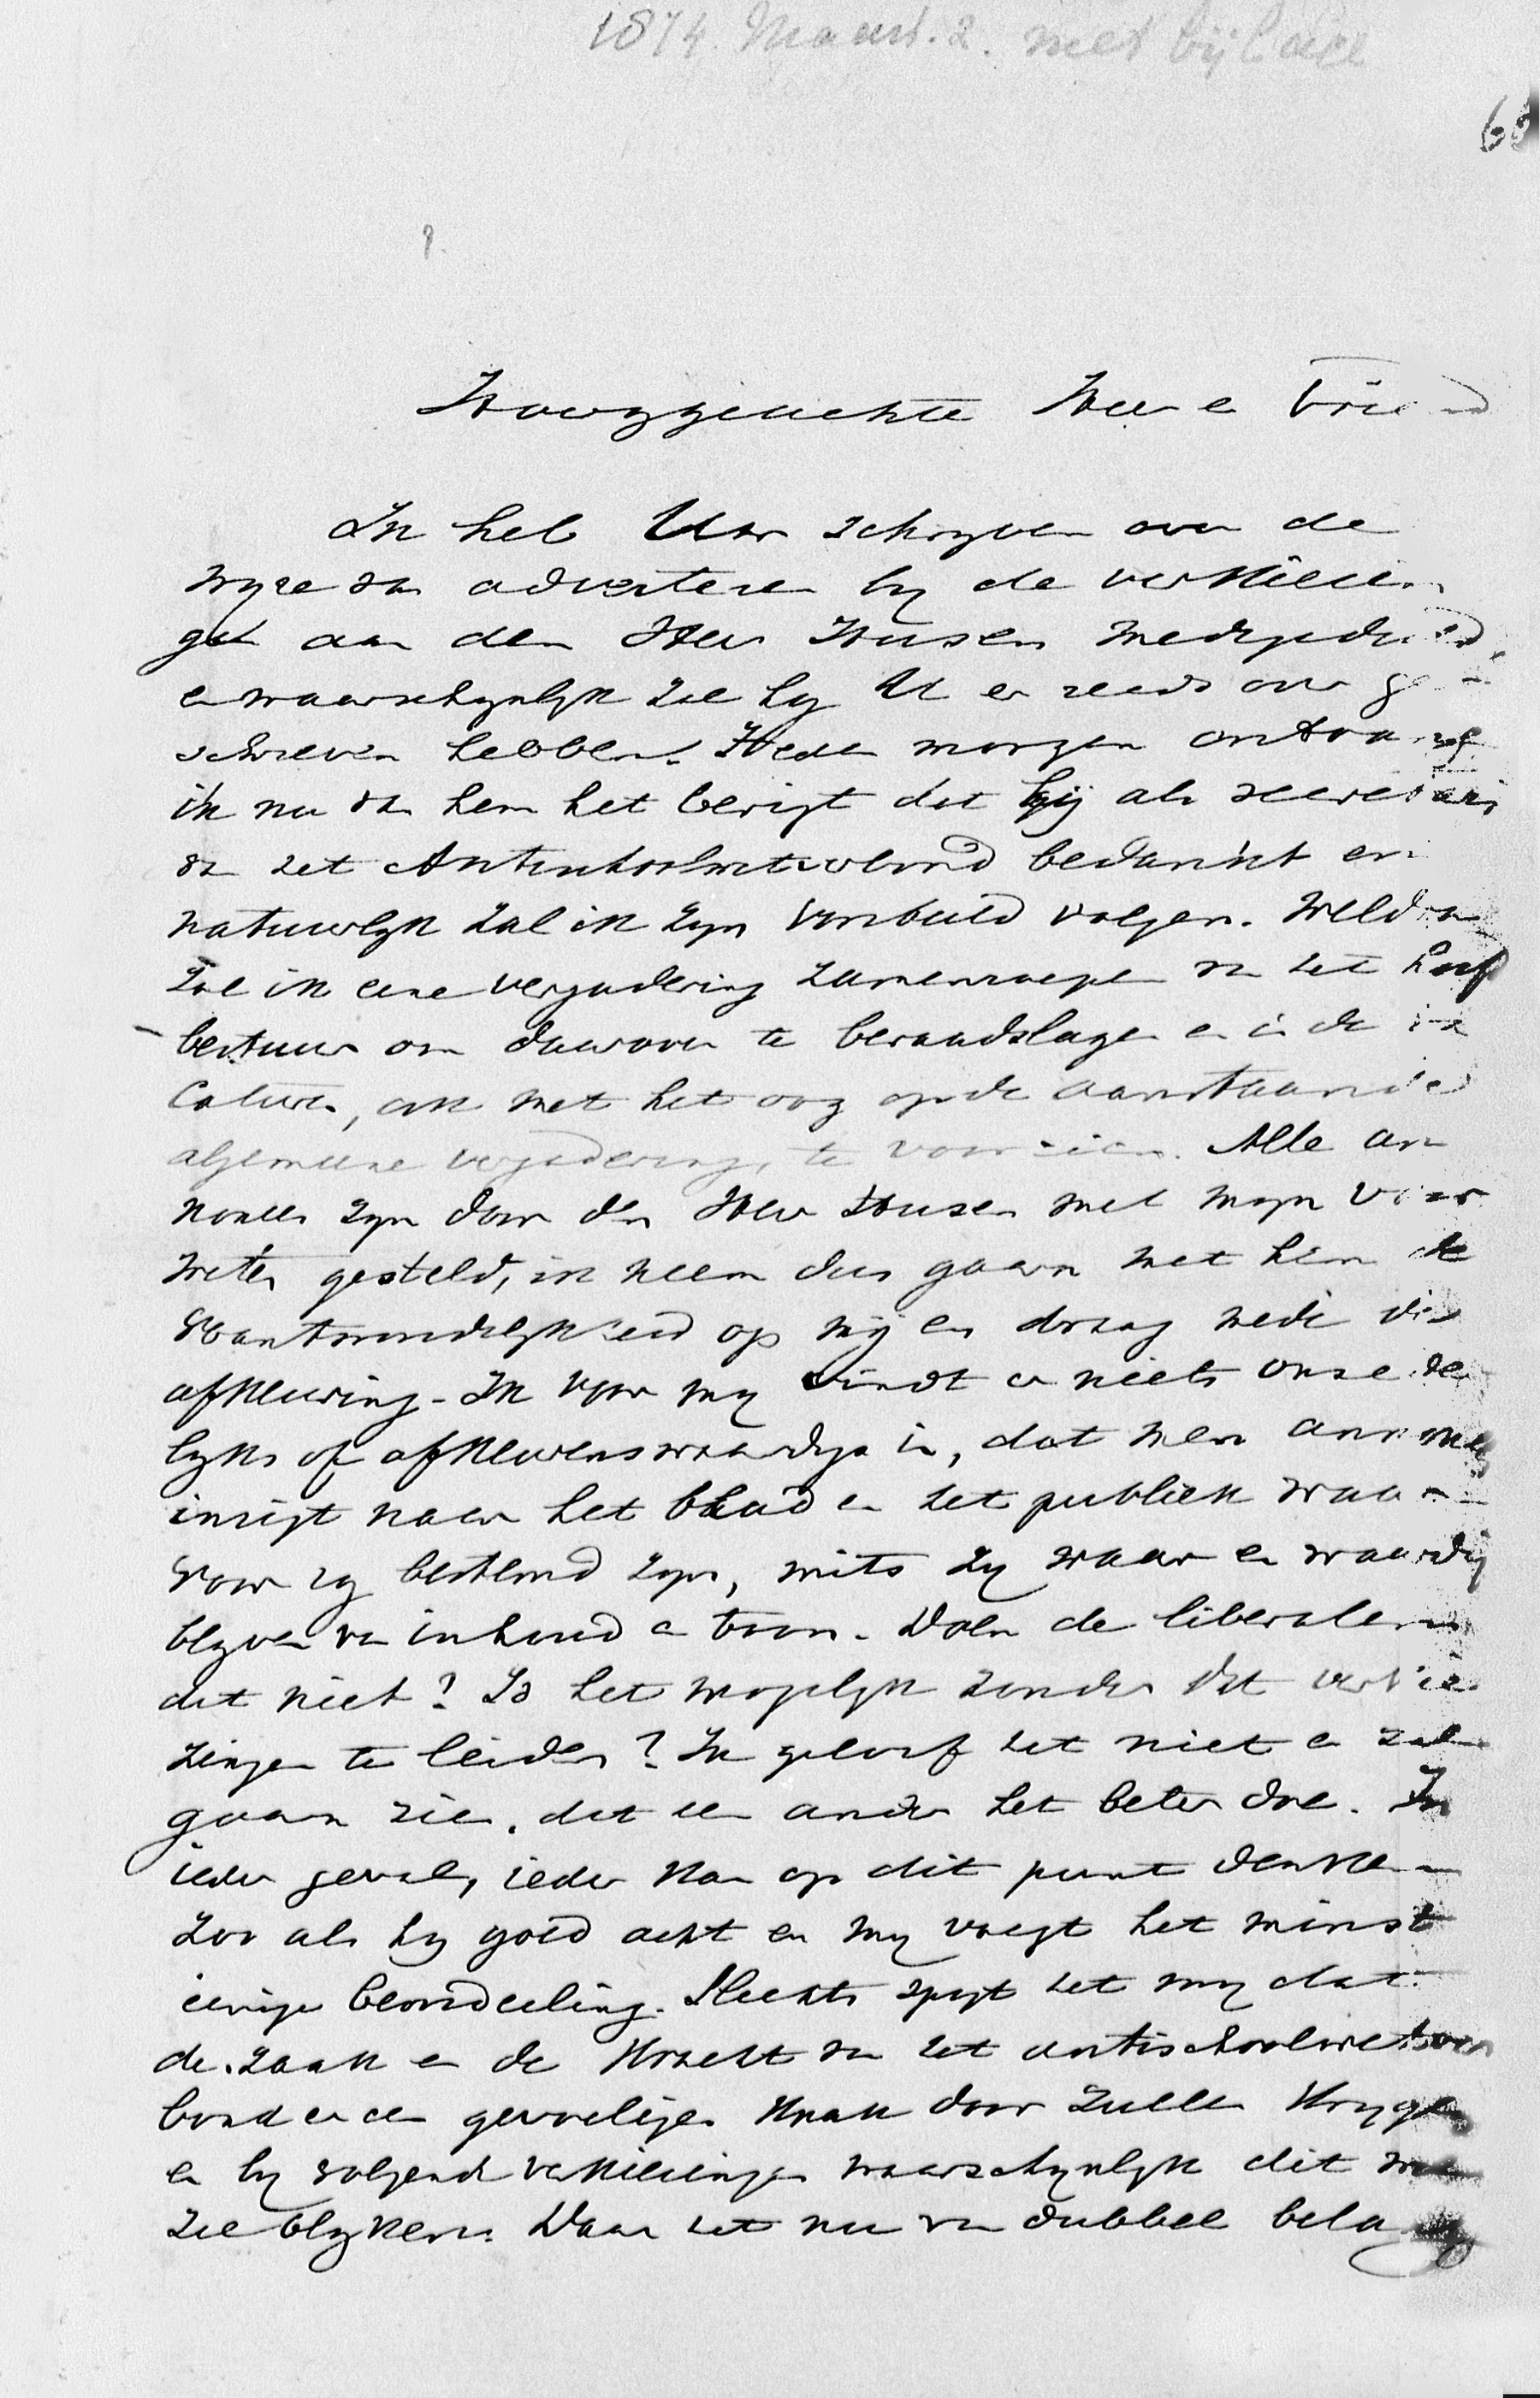 1874. Maart. 2. met bijlage
Hooggeachte Heer en Vriend
Ik heb Uw schryven over de
wyze van adverteren by de verkiezin
gen aan den Heer Huser medegedeeld
en waarschynlyk zal hy U er reeds over ge
schreven hebben. Heden morgen ontvang
ik nu van hem het berigt dat hij als secretaris
van het Antischoolwetverbond bedankt en
natuurlyk zal ik zyn voorbeeld volgen. Weldra
zal ik eene vergadering zamenroepen van het hoof
bestuur om daarover te beraadslagen en in de va
caturen, ook met het oog op de aanstaande
algemeene vergadering, te voorzien. Alle an
nonces zyn door den Heer Huser met myn voor
weten gesteld, ik neem dus gaarn met hem de
verantwoordelykheid op mij en draag mede die
afkeuring. Ik voor my vindt er niets onzede
lyks of afkeurenswaardigs in, dat men annonces
inrigt naar het blad en het publiek waar
voor zy bestemd zyn, mits zy waar en waardig
blyven van inhoud en toon. Doen de liberalen
dit niet? Is het mogelyk zonder dit verkie
zingen te leiden? Ik geloof het niet en zal
gaarn zien, dat een ander het beter doe. In
ieder geval, ieder kan op dit punt denken
zoo als hy goed acht en my voegt het minst
eenige beoordeeling. Slechts spyt het my dat
de zaak en de kracht van het antischoolwetver
bond er een gevoeligen knak door zullen krygen
en by volgende verkiezingen waarschynlyk dit
zal blyken. Daar het nu van dubbel belang